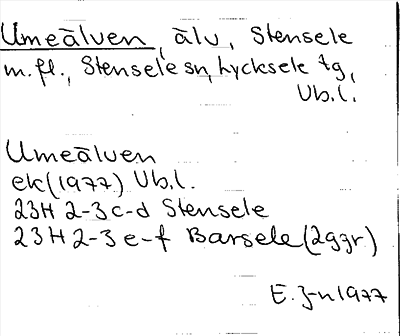 Umeälven, älv, Stensele
m.fl., Stensele sn, Lycksele tg,
Vb.l.
Umeälven
ek (1977) Vb.l.
23H 2-3 c-d Stensele
23H 2-3 e-f Barsele (2ggr)
E. J-n 1977